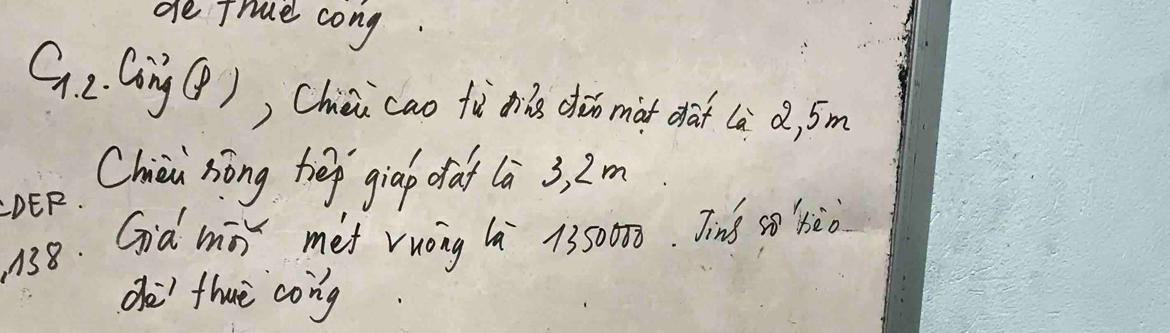 để thuê cổng.
C1.2. Cổng (P), Chiều cao từ đỉnh đến mặt đất là 2,5m
Chiều rộng tiếp giáp đất là 3,2m.
CDEF.
Giá mỗi mét vuông là 1350000. Tính số tiền
,138.
để thuê cổng.